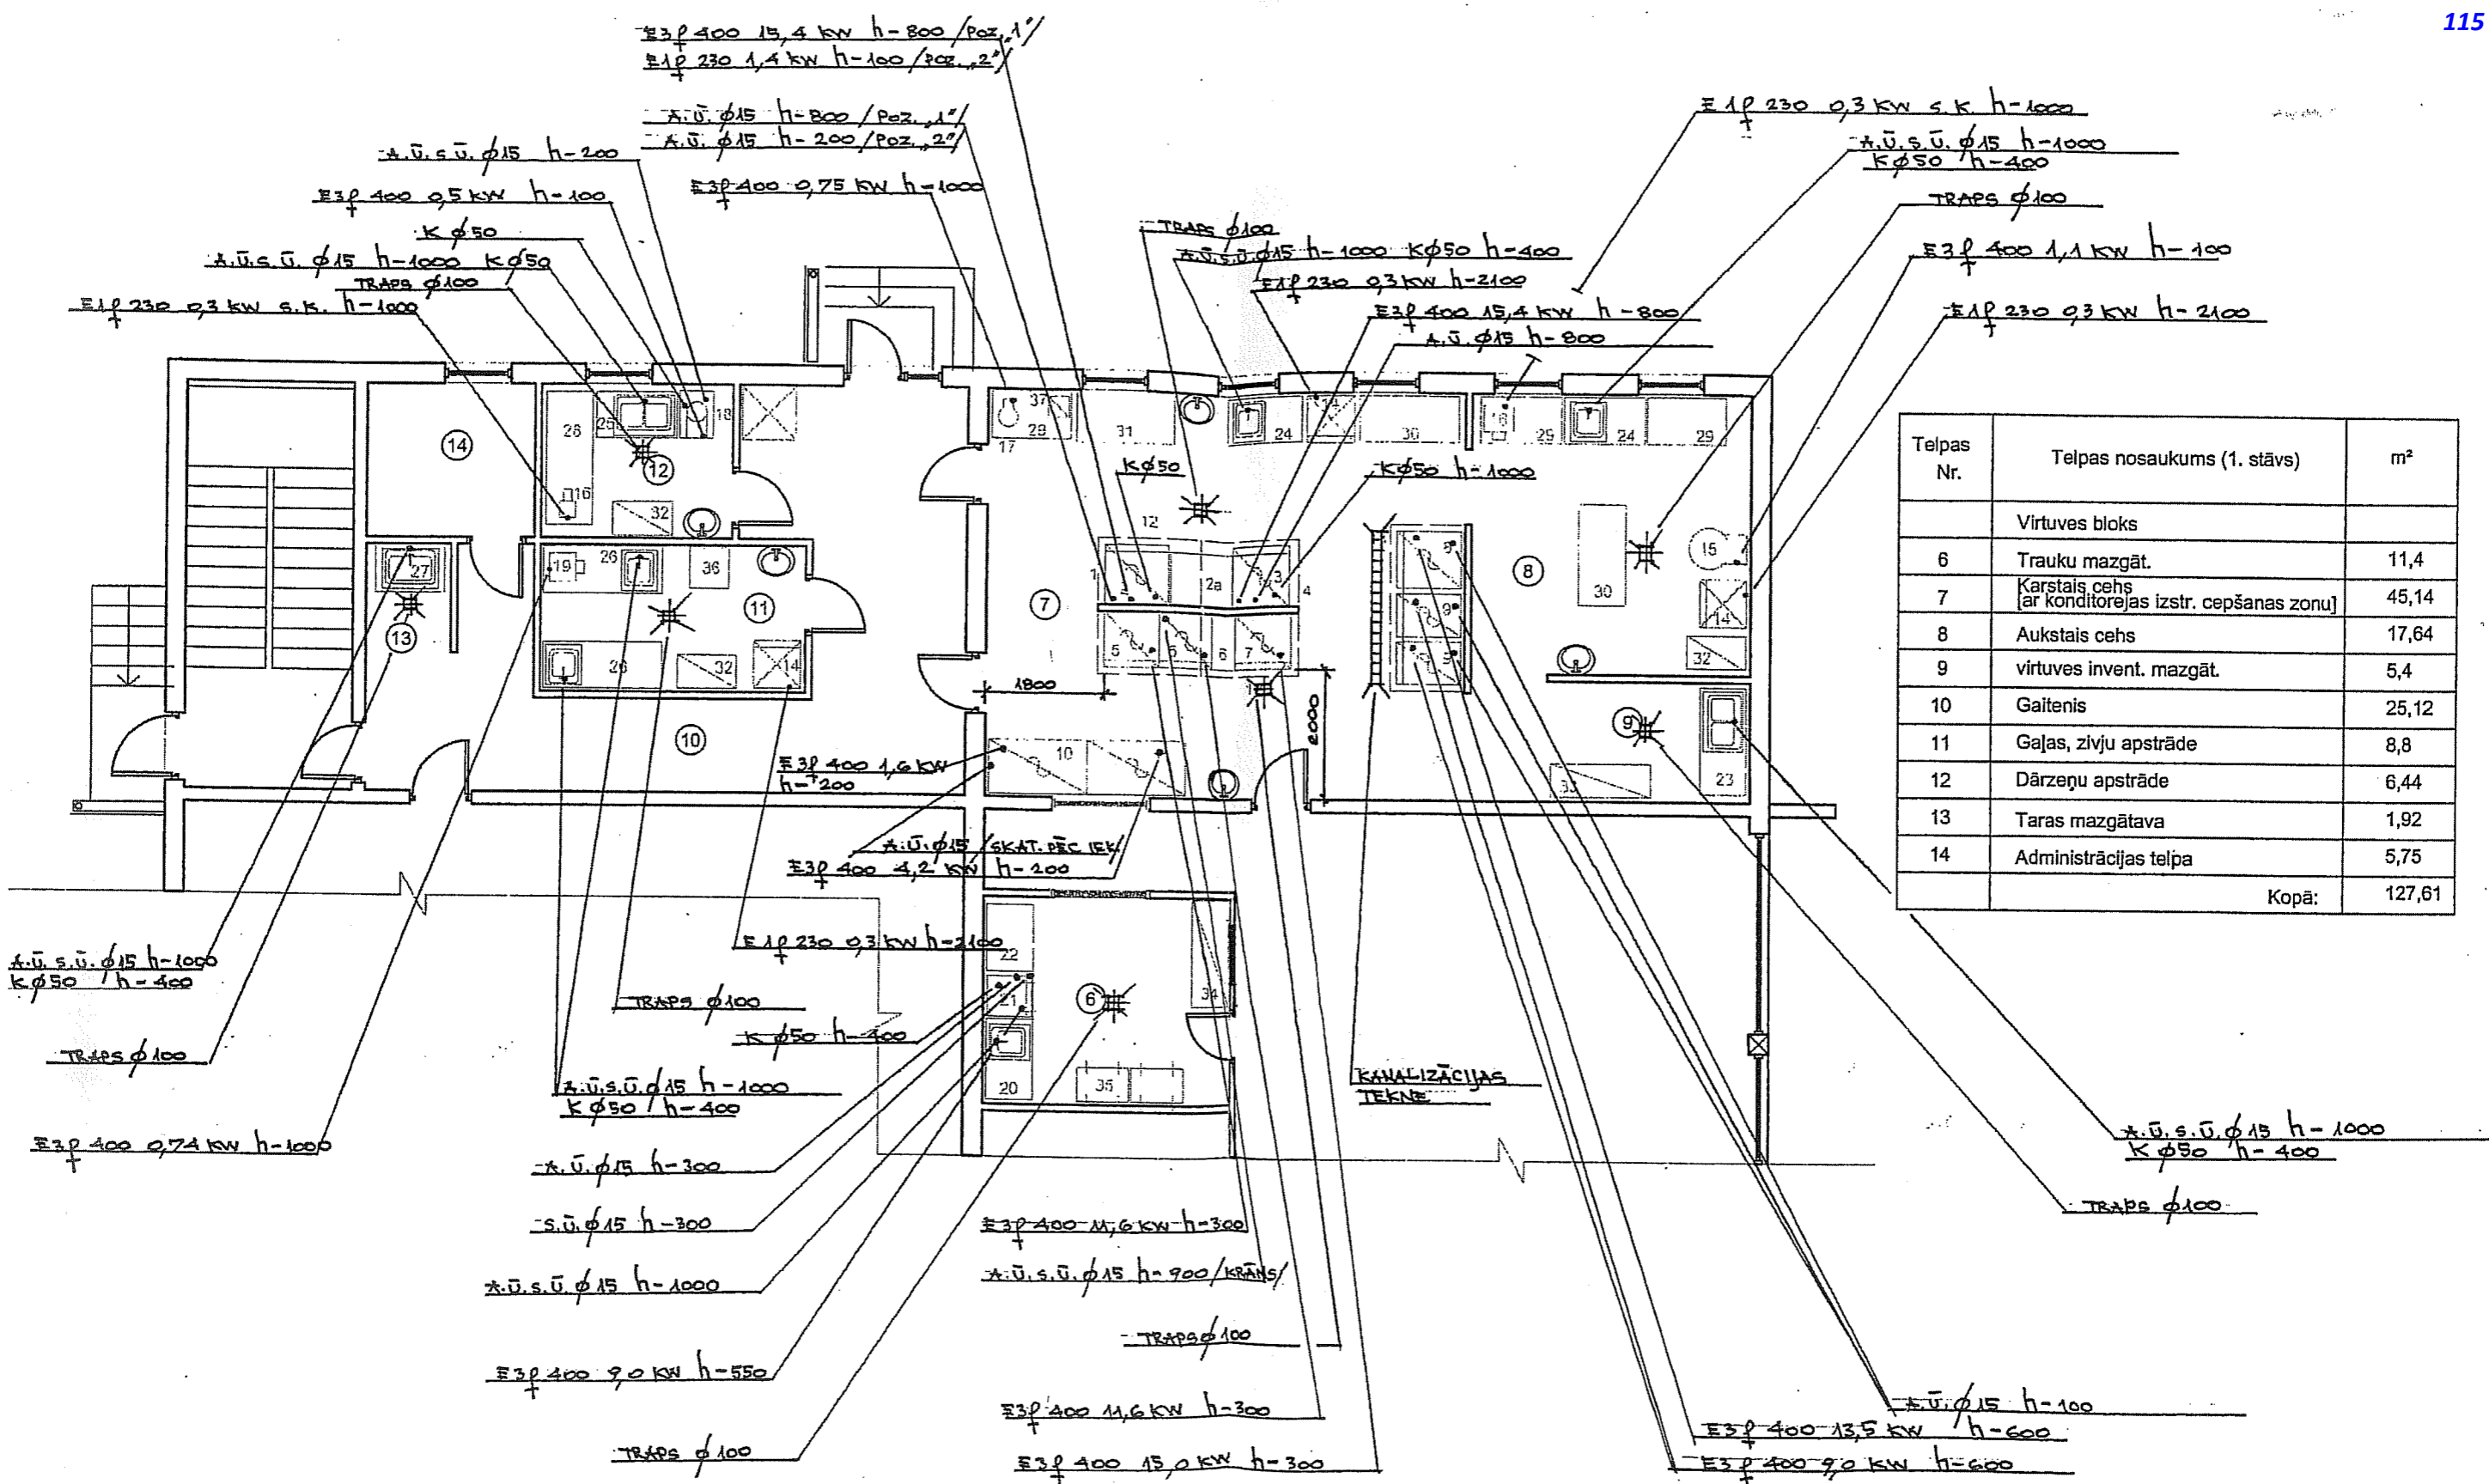 115
E3f 400 15,4 KW h-800 /POZ. „1"/
E1f 230 1,4 KW h-100 /POZ. „2"/
A.Ū. ϕ15 h-800 /POZ. „1"/
A.Ū. ϕ15 h-200 /POZ. „2"/
A.Ū.S.Ū. ϕ15 h-200
E3f 400 0,5 KW h-100
E3f 400 0,75 KW h-1000
K ϕ50
A.Ū.S.Ū. ϕ15 h-1000 Kϕ50
TRAPS ϕ100
E1f 230 0,3 KW S.K. h-1000
E1f 230 0,3 KW S.K. h-1000
A.Ū.S.Ū. ϕ15 h-1000
Kϕ50 h-400
TRAPS ϕ100
E3f 400 1,1 KW h-100
E1f 230 0,3 KW h-2100
TRAPS ϕ100
A.Ū.S.Ū. ϕ15 h-1000 Kϕ50 h-400
E1f 230 0,3 KW h-2100
E3f 400 15,4 KW h-800
A.Ū. ϕ15 h-800
Kϕ50
Kϕ50 h-1000
14
28
25
18
12
16
32
27
13
19
26
36
11
26
32
14
10
37
28
17
31
24
14
30
16
25
24
29
12
1
2
2a
3
4
7
5
6
6
7
1800
2000
10
9
9
9
8
30
15
14
32
9
33
23
E3f 400 1,6 KW
h-200
A.Ū. ϕ15 /SKAT. PĒC IEK/
E3f 400 4,2 KW h-200
E1f 230 0,3 KW h-2100
22
21
20
6
34
35
A.Ū.S.Ū. ϕ15 h-1000
Kϕ50 h-400
TRAPS ϕ100
E3f 400 0,74 KW h-1000
TRAPS ϕ100
K ϕ50 h-400
A.Ū.S.Ū. ϕ15 h-1000
K ϕ50 h-400
A.Ū. ϕ15 h-300
S.Ū. ϕ15 h-300
A.Ū.S.Ū. ϕ15 h-1000
E3f 400 9,0 KW h-550
TRAPS ϕ100
E3f 400 11,6 KW h-300
A.Ū.S.Ū. ϕ15 h-900 /KRĀNS/
TRAPS ϕ100
E3f 400 11,6 KW h-300
E3f 400 15,0 KW h-300
KANALIZĀCIJAS
TEKNE
A.Ū.S.Ū. ϕ15 h-1000
K ϕ50 h-400
TRAPS ϕ100
A.Ū. ϕ15 h-100
E3f 400 13,5 KW h-600
E3f 400 9,0 KW h-600
Telpas Nr. Telpas nosaukums (1. stāvs) m²
Virtuves bloks
6 Trauku mazgāt. 11,4
7 Karstais cehs [ar konditorejas izstr. cepšanas zonu] 45,14
8 Aukstais cehs 17,64
9 virtuves invent. mazgāt. 5,4
10 Gaitenis 25,12
11 Gaļas, zivju apstrāde 8,8
12 Dārzeņu apstrāde 6,44
13 Taras mazgātava 1,92
14 Administrācijas telpa 5,75
Kopā: 127,61